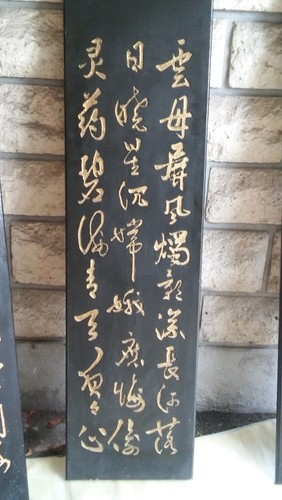 雲母屏風燭影深長河落
日曉星沉嫦娥應悔偷
灵药碧海青天夜夜心